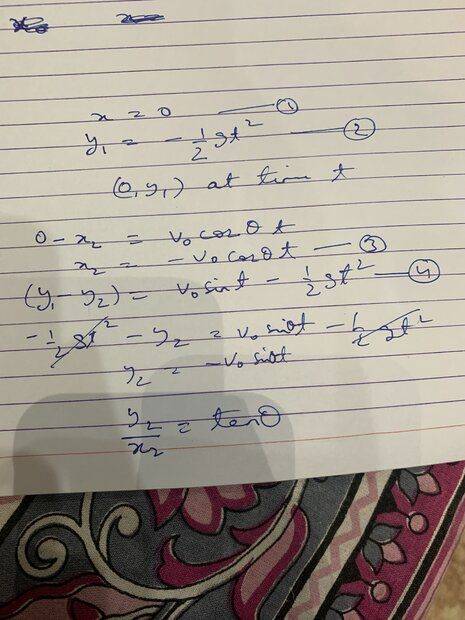 x = 0 —— ①
y₁ = - 1/2 gt² —— ②
(0, y₁) at time t
0 - x₂ = v₀ cos θ t
x₂ = - v₀ cos θ t —— ③
(y₁ - y₂) = v₀ sin t - 1/2 gt² —— ④
- 1/2 gt² - y₂ = v₀ sin θt - 1/2 gt²
y₂ = - v₀ sin θt
y₂/x₂ = tan θ